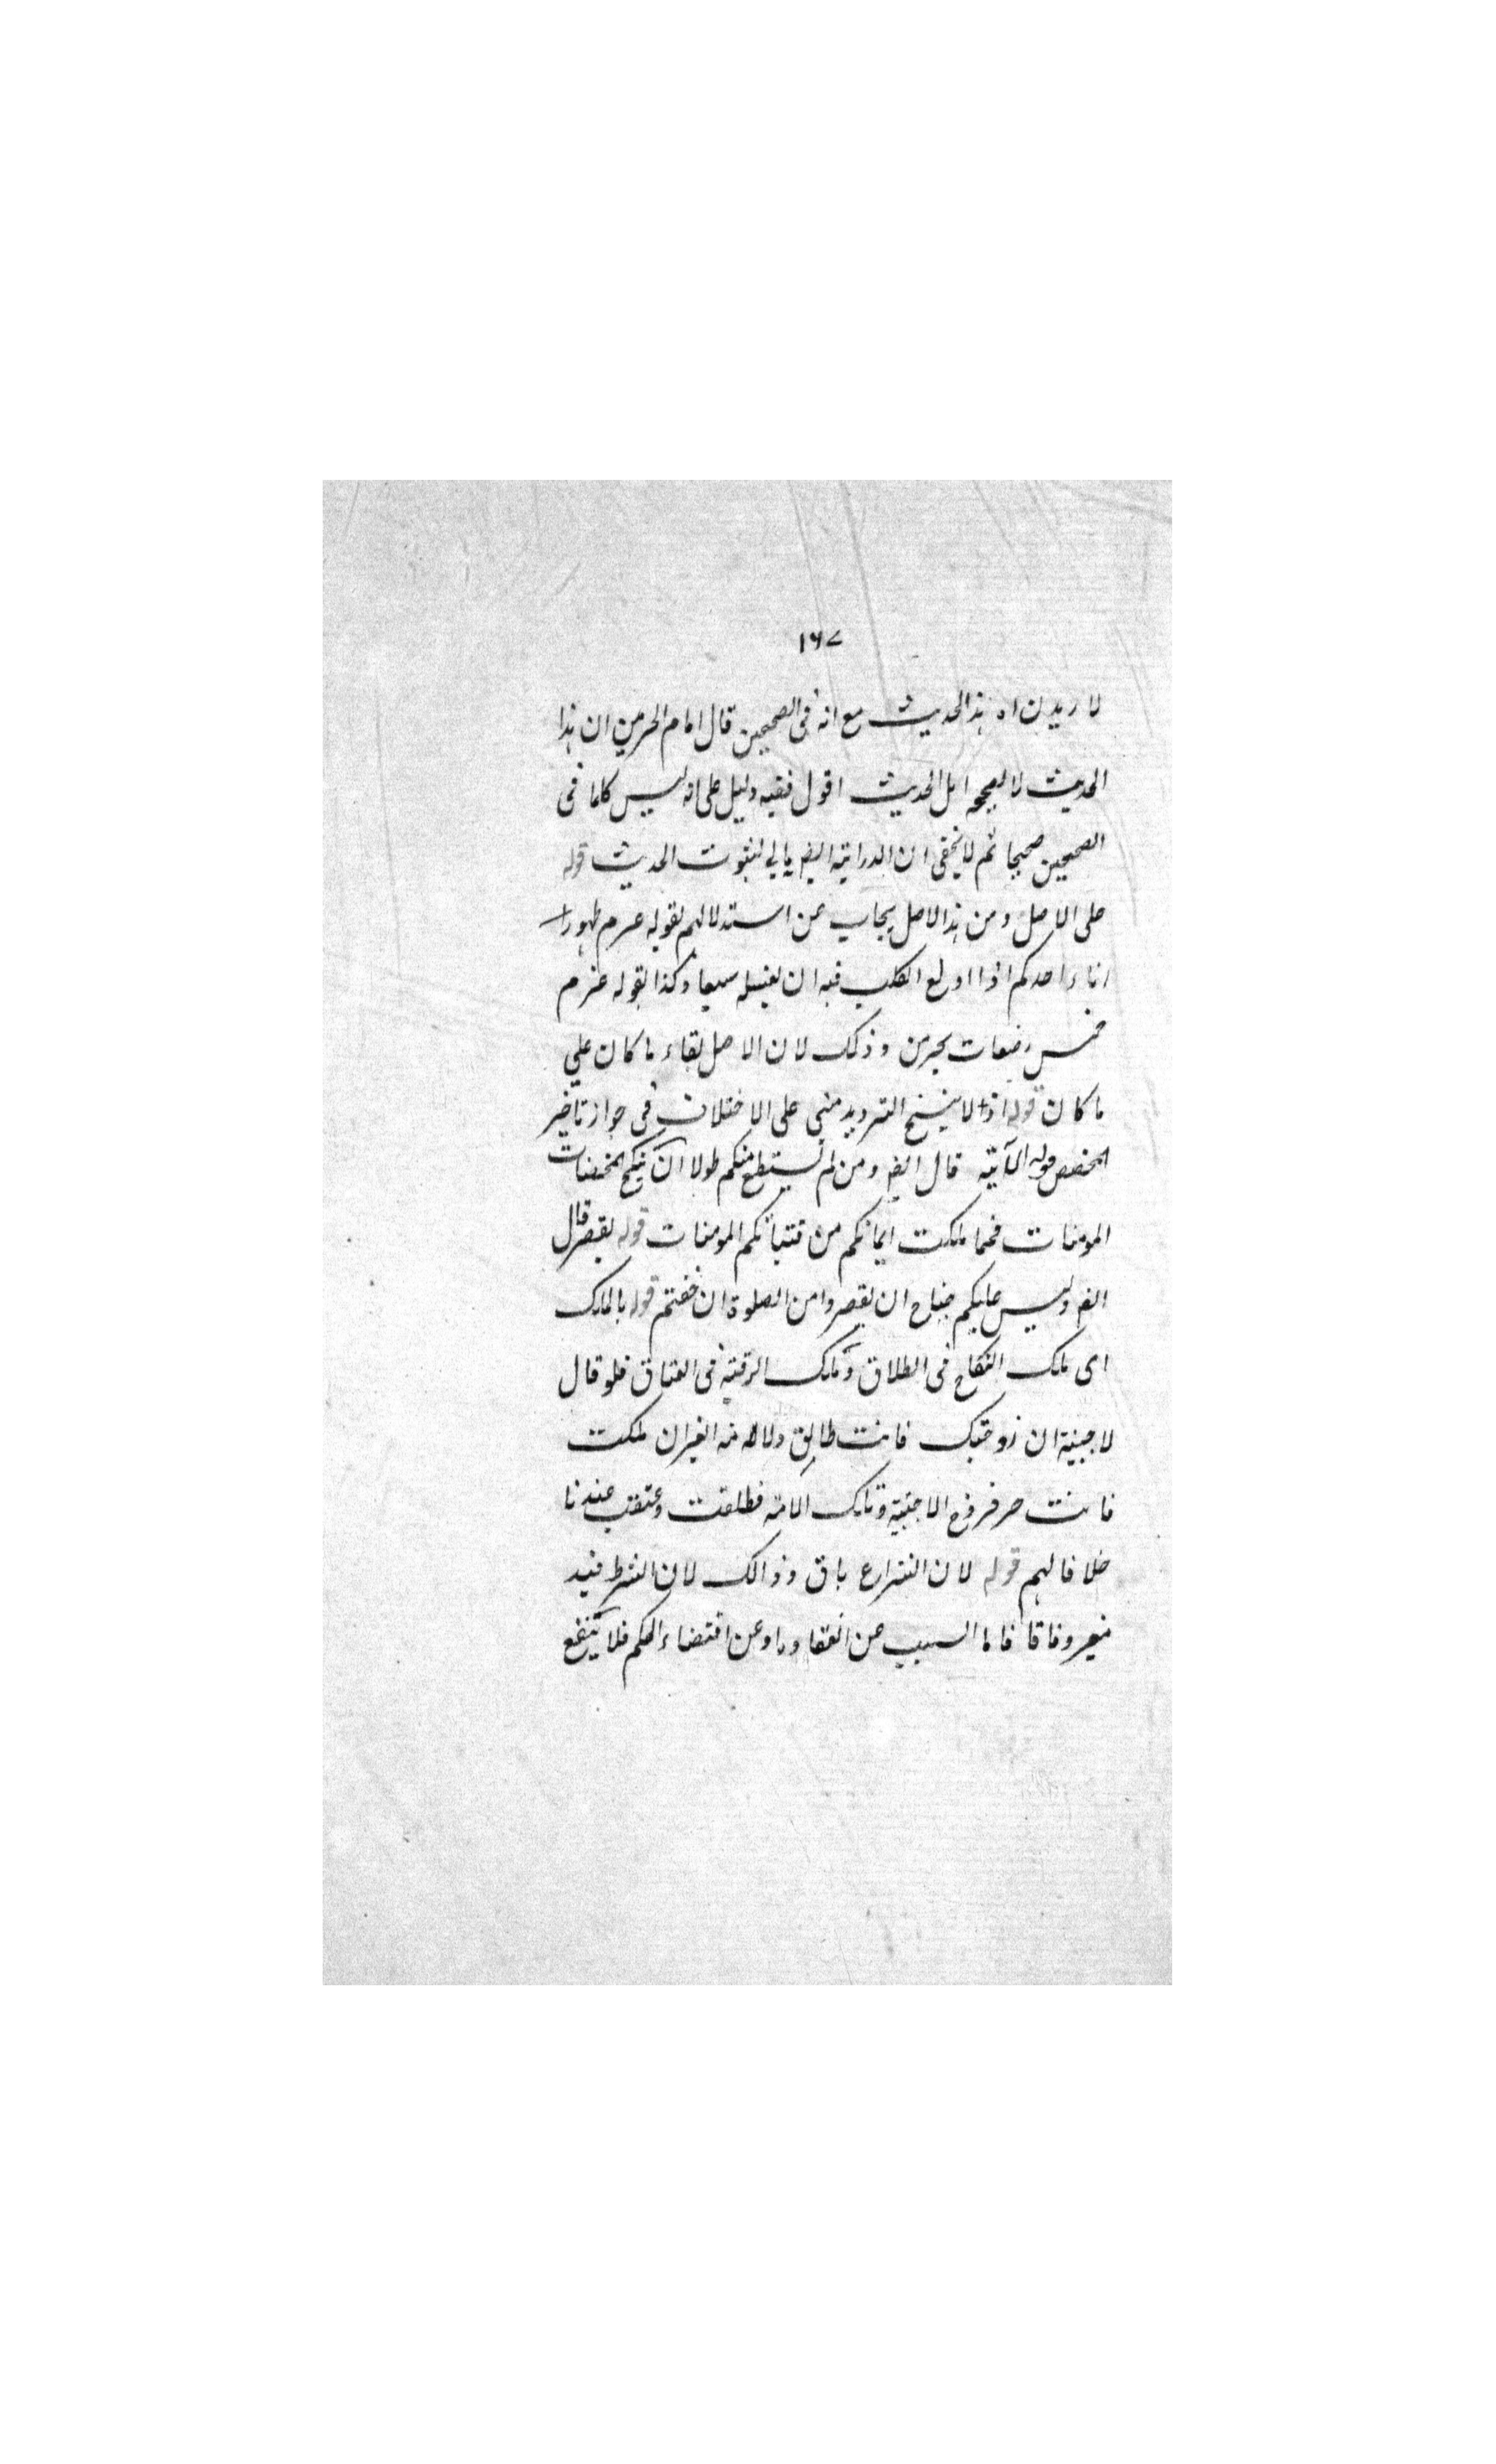 ١٦٧
لا ريدن اه هذا الحديث مع انه فى الصحيحين قال امام الحرمين ان هذا
الحديث لا يصححه اهل الحديث اقول ففيه دليل على انه ليس كلما فى
الصحيحين صحيحا ثم لا يخفى ان الدراية ايضا لثبوت الحديث قوله
على الاصل ومن هذا الاصل يجاب عن استدلالهم بقوله عرم طهور
اناء احدكم اذا اولغ الكلب فيه ان يغسله سبعا وكذا بقوله عرم
خمس رضعات يحرمن وذلك لان الاصل بقاء ما كان على
ما كان قوله اذ لا ينسخ الترديد مبنى على الاختلاف فى جواز تاخير
المخصص قوله الآية قال الله ومن لم يستطع منكم طولا ان ينكح المحصنات
المومنات فمما ملكت ايمانكم من فتياتكم المومنات قوله بقصر قال
الله وليس عليكم جناح ان تقصروا من الصلوة ان خفتم قوله بالملك
اى ملك النكاح فى الطلاق وملك الرقبة فى العتاق فلو قال
لاجنبية ان زوجتك فانت طالق ولامة الغير ان ملكت
فانت حر فزوج الاجنبية وملك الامة فطلقت وعتقت عندنا
خلافا لهم قوله لان الشرارع باق وذالك لان الشرط قيد
مغير وفاقا فاما السبب عن انعقاده او عن اقتضاء الحكم فلا